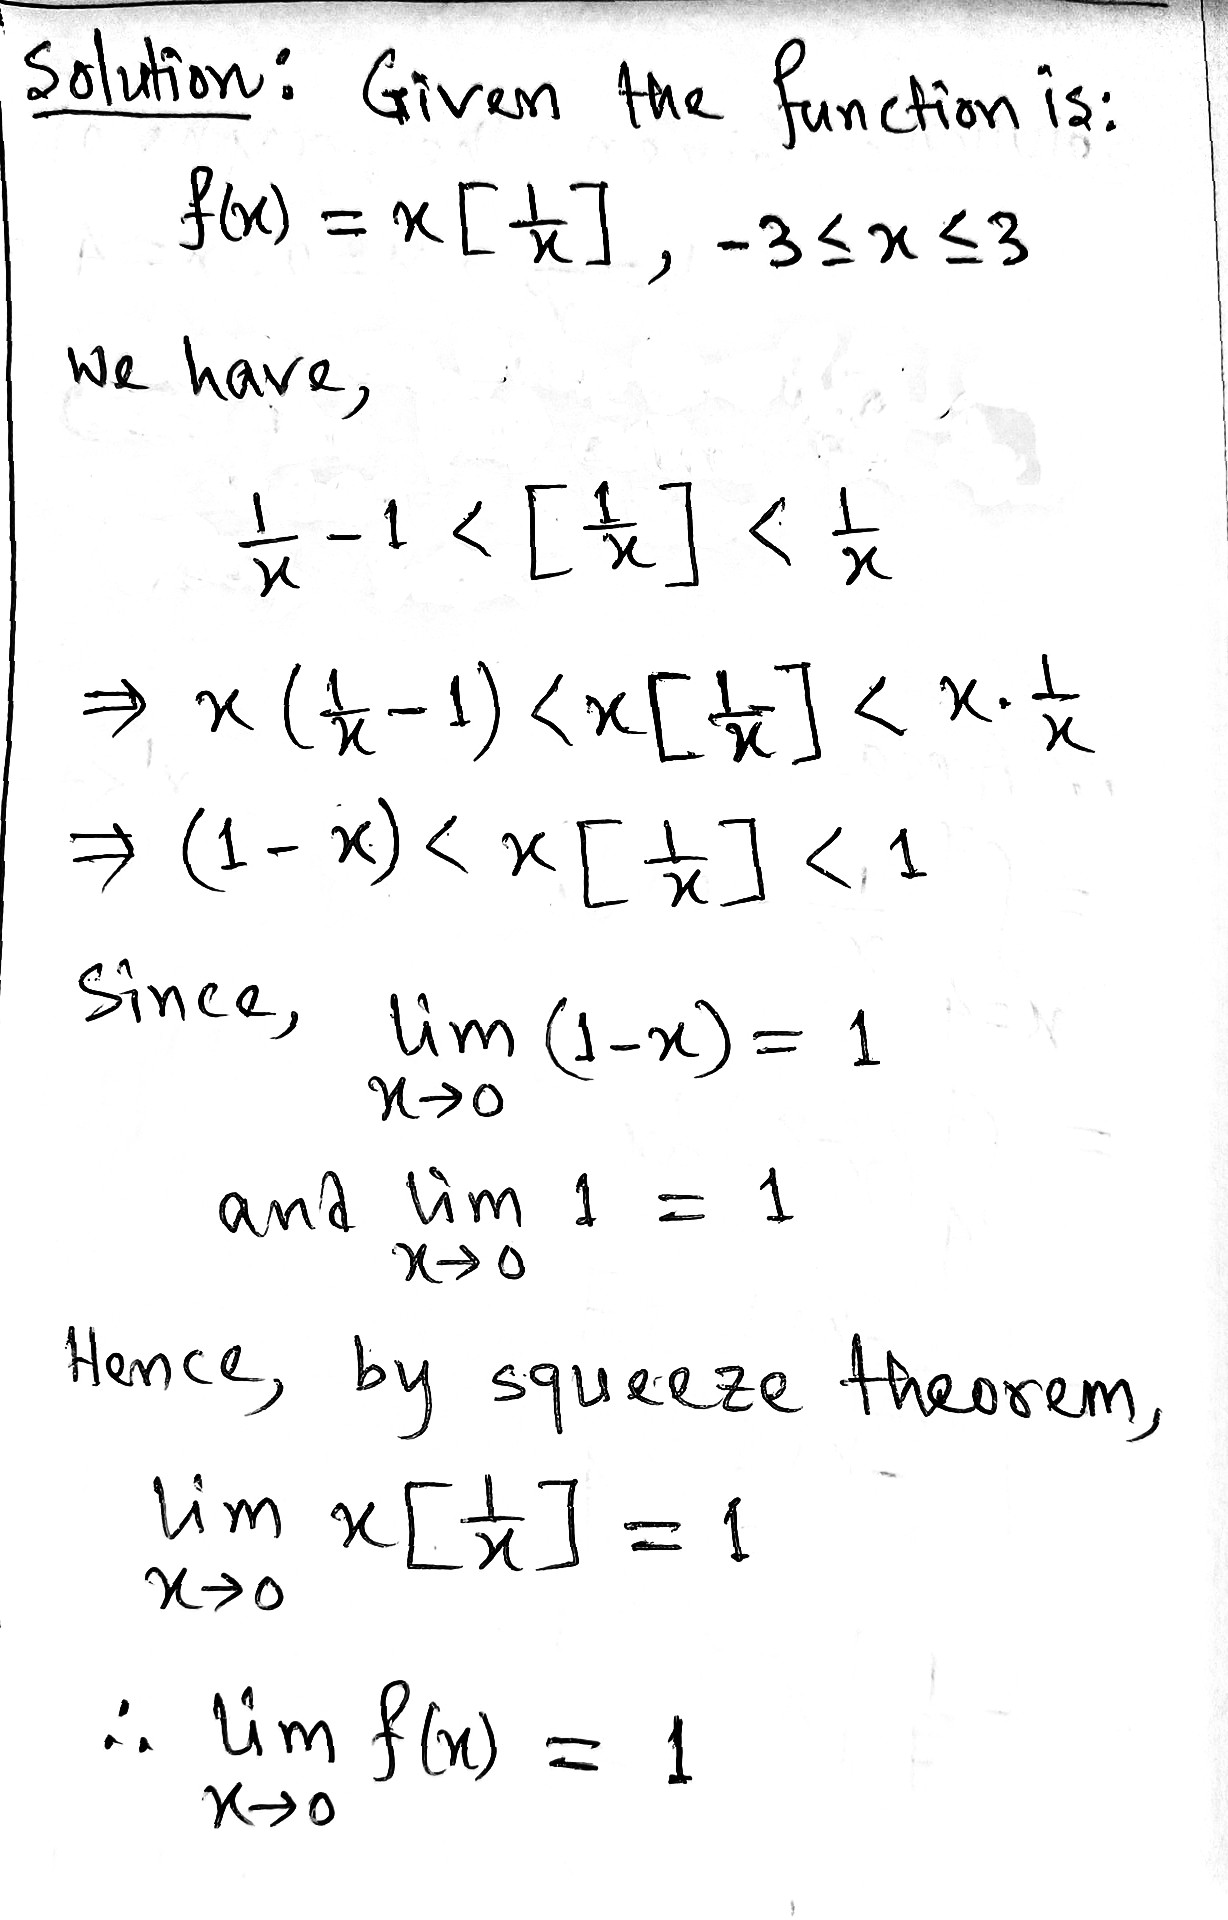 Solution: Given the function is:
f(x) = x[1/x], -3 ≤ x ≤ 3
we have,
1/x - 1 < [1/x] < 1/x
⇒ x(1/x - 1) < x[1/x] < x. 1/x
⇒ (1 - x) < x[1/x] < 1
Since, lim x→0 (1-x) = 1
and lim x→0 1 = 1
Hence, by squeeze theorem,
lim x→0 x[1/x] = 1
∴ lim x→0 f(x) = 1